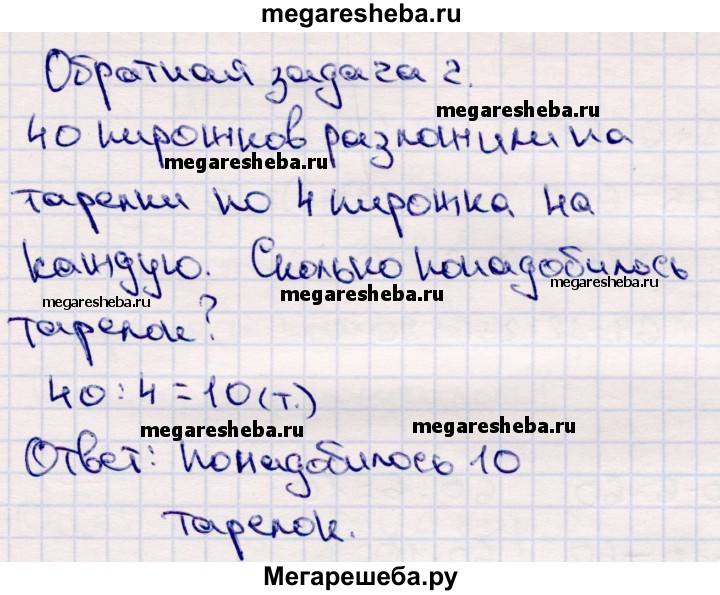 megaresheba.ru
Обратная задача 2.
megaresheba.ru
40 пирожков разложили на
megaresheba.ru
тарелки по 4 пирожка на
каждую. Сколько понадобилось
megaresheba.ru
megaresheba.ru
megaresheba.ru
тарелок?
40 : 4 = 10 (т.)
megaresheba.ru
megaresheba.ru
Ответ: понадобилось 10
тарелок.
Мегарешеба.ру